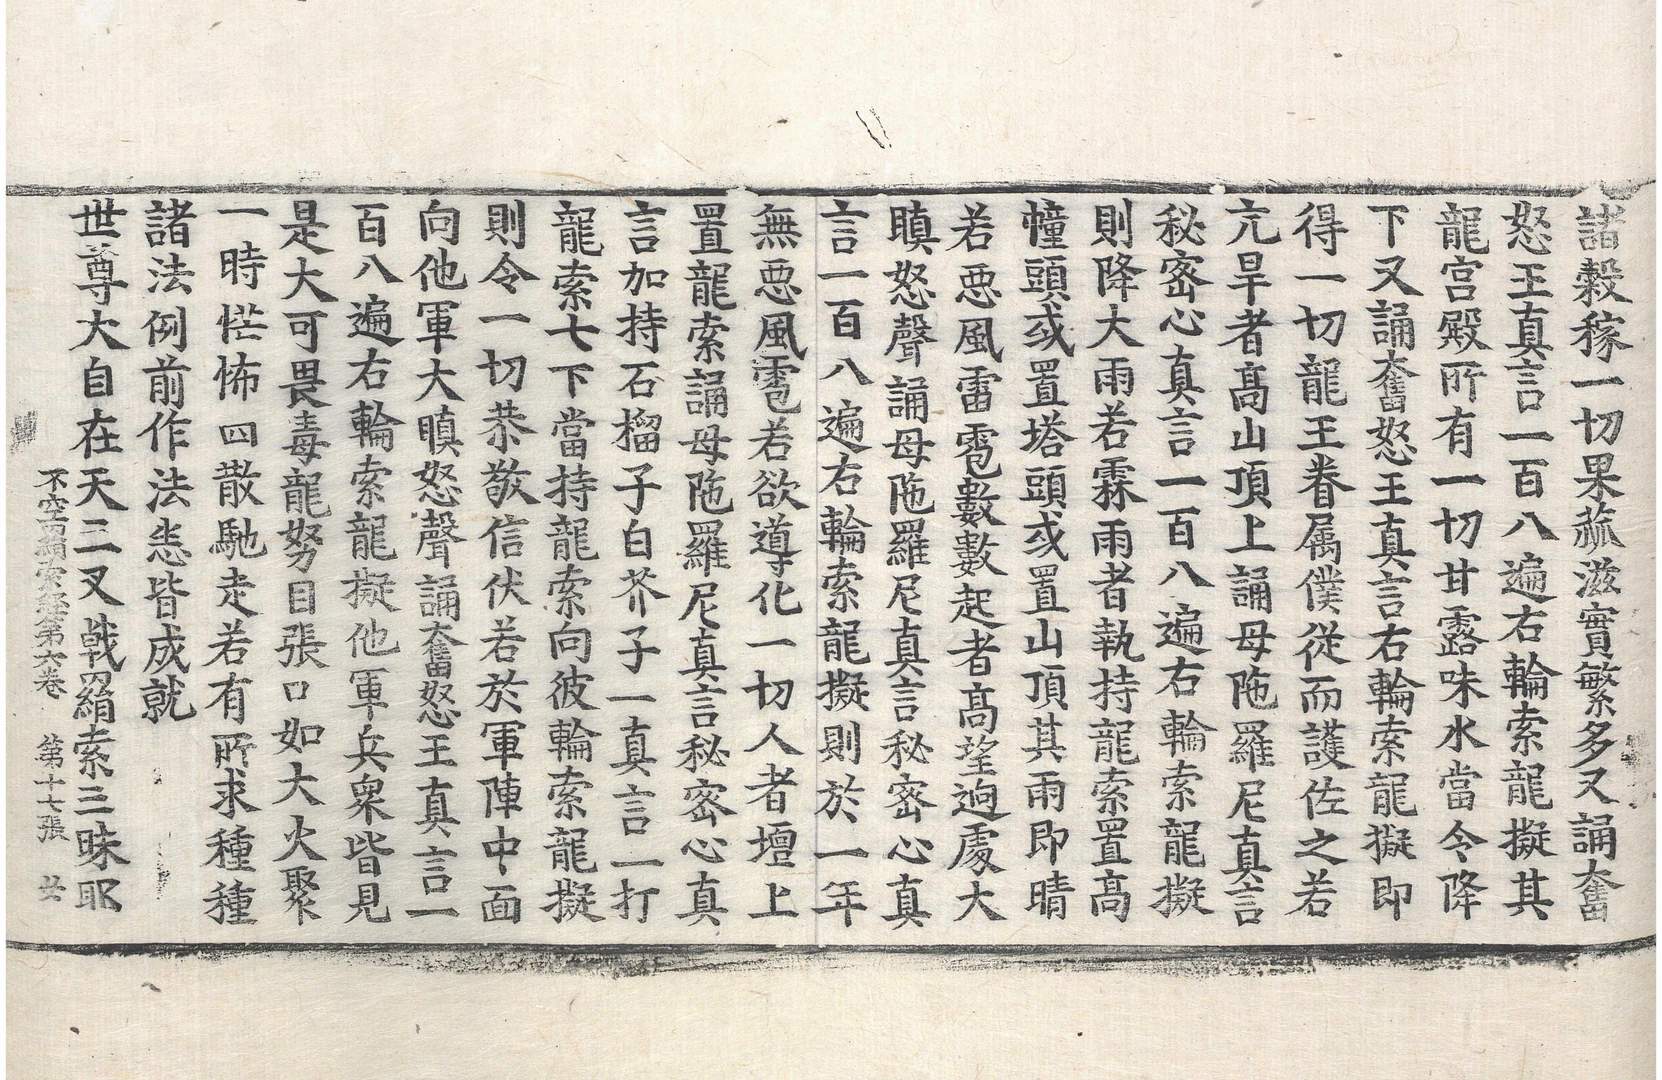 諸穀稼一切果蓏滋實繁多又誦奮
怒王真言一百八遍右輪索龍擬其
龍宮殿所有一切甘露味水當令降
下又誦奮怒王真言右輪索龍擬即
得一切龍王眷属僕從而護佐之若
亢旱者髙山頂上誦母陁羅尼真言
秘密心真言一百八遍右輪索龍擬
則降大雨若霖雨者執持龍索置髙
幢頭或置塔頭或置山頂其雨即晴
若惡風雷雹數數起者髙望逈處大
瞋怒聲誦母陁羅尼真言秘密心真
言一百八遍右輪索龍擬則於一年
無惡風雹若欲導化一切人者壇上
置龍索誦母陁羅尼真言秘密心真
言加持石榴子白芥子一真言一打
龍索七下當持龍索向彼輪索龍擬
則令一切恭敬信伏若於軍陣中面
向他軍大瞋怒聲誦奮怒王真言一
百八遍右輪索龍擬他軍兵衆皆見
是大可畏毒龍努目張口如大火聚
一時恾怖四散馳走若有所求種種
諸法例前作法悉皆成就
世尊大自在天三叉戟羂索三昧耶
不空羂索經第六卷 第十七張 女